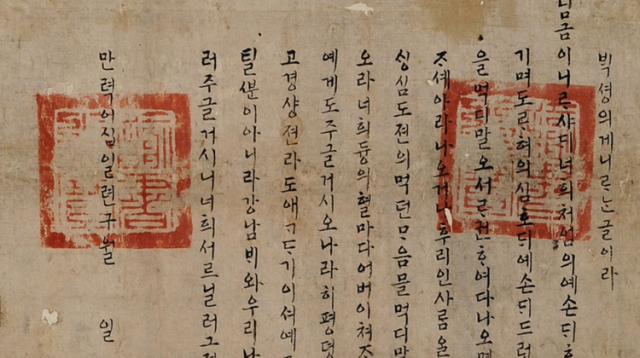 ᄇᆡᆨ셩의게니ᄅᆞᄂᆞᆫ글이라
님금이니ᄅᆞ샤ᄃᆡ너희처엄의예손ᄃᆡ
기며도ᄅᆞ혀의심ᄒᆞᄃᆡ예손ᄃᆡ드러
을먹디말오서ᄅᆞ권ᄒᆞ여다나오면
ᄌᆞ셰아라나오거나후리인사ᄅᆞᆷ을
ᄉᆡᆼ심도젼의먹던ᄆᆞᄋᆞᆷ믈먹디마
오라너희듕의혈마다어버이쳐ᄌᆞ
예게도주글거시오나라히평뎡
고경샹젼라도애ᄀᆞᄃᆞ기이셔예
틸ᄲᅮᆫ이아니라강남ᄇᆡ와우리나
러주글거시니너희서르닐러그
만력이십일년구월 일